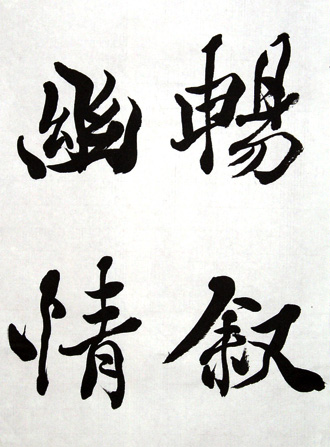 暢叙
幽情